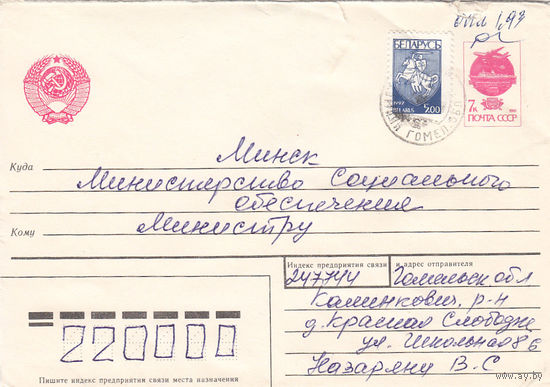 опл 1,93
БЕЛАРУСЬ
1992 BELARUS 5.00
7к
ПОЧТА СССР
ГОМЕЛ. ОБЛ
Куда
Минск
Министерство Социального
обеспечения
Кому
Министру
Индекс предприятия связи и адрес отправителя
247744 Гомельск обл
Калинкович. р-н
д. Красная Слобода
ул. Школьная 8 б
Назаряну В. С
220000
Пишите индекс предприятия связи места назначения
www.ay.by